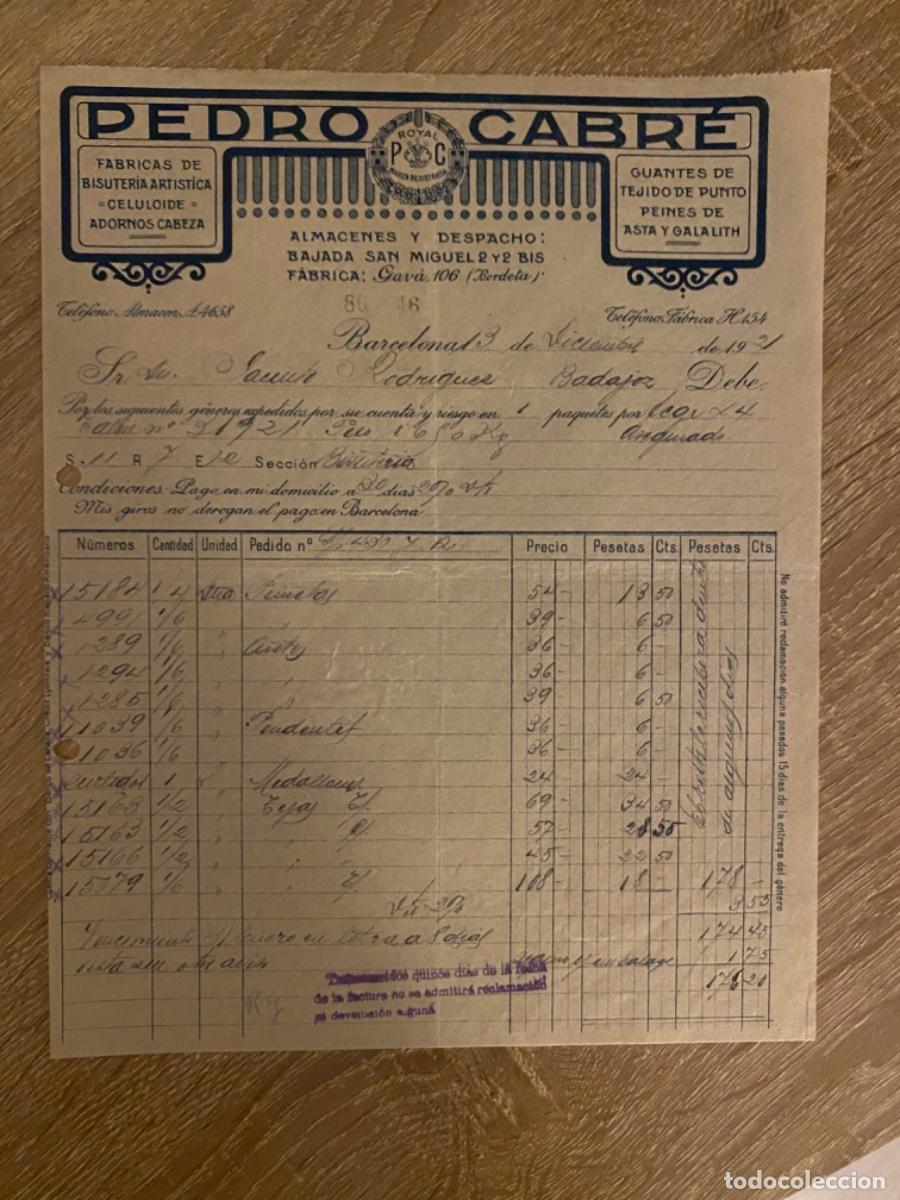 PEDRO CABRÉ
ROYAL
P C
MARCA REGISTRADA
FABRICAS DE
BISUTERÍA ARTISTICA
=CELULOIDE=
ADORNOS CABEZA
GUANTES DE
TEJIDO DE PUNTO
PEINES DE
ASTA Y GALALITH
ALMACENES Y DESPACHO:
BAJADA SAN MIGUEL 2 Y 2 BIS
FÁBRICA: Gavá, 106 (Bordeta)
Teléfono Almacen A 4658
Teléfono Fábrica H 154
86 16
Barcelona 13 de Diciembre de 1921
Sr. Dn. Jacinto Rodrigues Badajoz Debe
Por los siguientes géneros expedidos por su cuenta y riesgo en 1 paquetes por
nº 21921 Peso 1 650 Kg Asegurado
S. 11 R 7 E 12 Sección Bisuteria
Condiciones: Pago en mi domicilio a 30 dias 2%
Mis giros no derogan el pago en Barcelona
Números Cantidad Unidad Pedido nº Precio Pesetas Cts. Pesetas Cts.
15184 1/4 54 - 13 50
4991 1/6 " 39 - 6 50
289 1/6 " 36 - 6 -
1294 1/6 " " 36 - 6 -
1285 1/6 " " 39 - 6 50
11039 1/6 " Pendientes 36 - 6 -
11036 1/6 " " 36 - 6 -
Surtidos 1 " Medallones 24 - 24 -
15163 1/2 " Tejas 69 - 34 50
15163 1/2 " " 57 - 28 50
15166 1/2 " " 45 - 22 50
15179 1/6 " " 108 - 18 - 178 -
2% 3 55
Vencimiento enero en letra a 8 días 174 45
vista sin otro aviso embalage 1 75
176 20
Transcurridos quince dias de la fecha
de la factura no se admitirá reclamación
ni devolución alguna
No admitiré reclamación alguna pasados 15 días de la entrega del género
todocoleccion